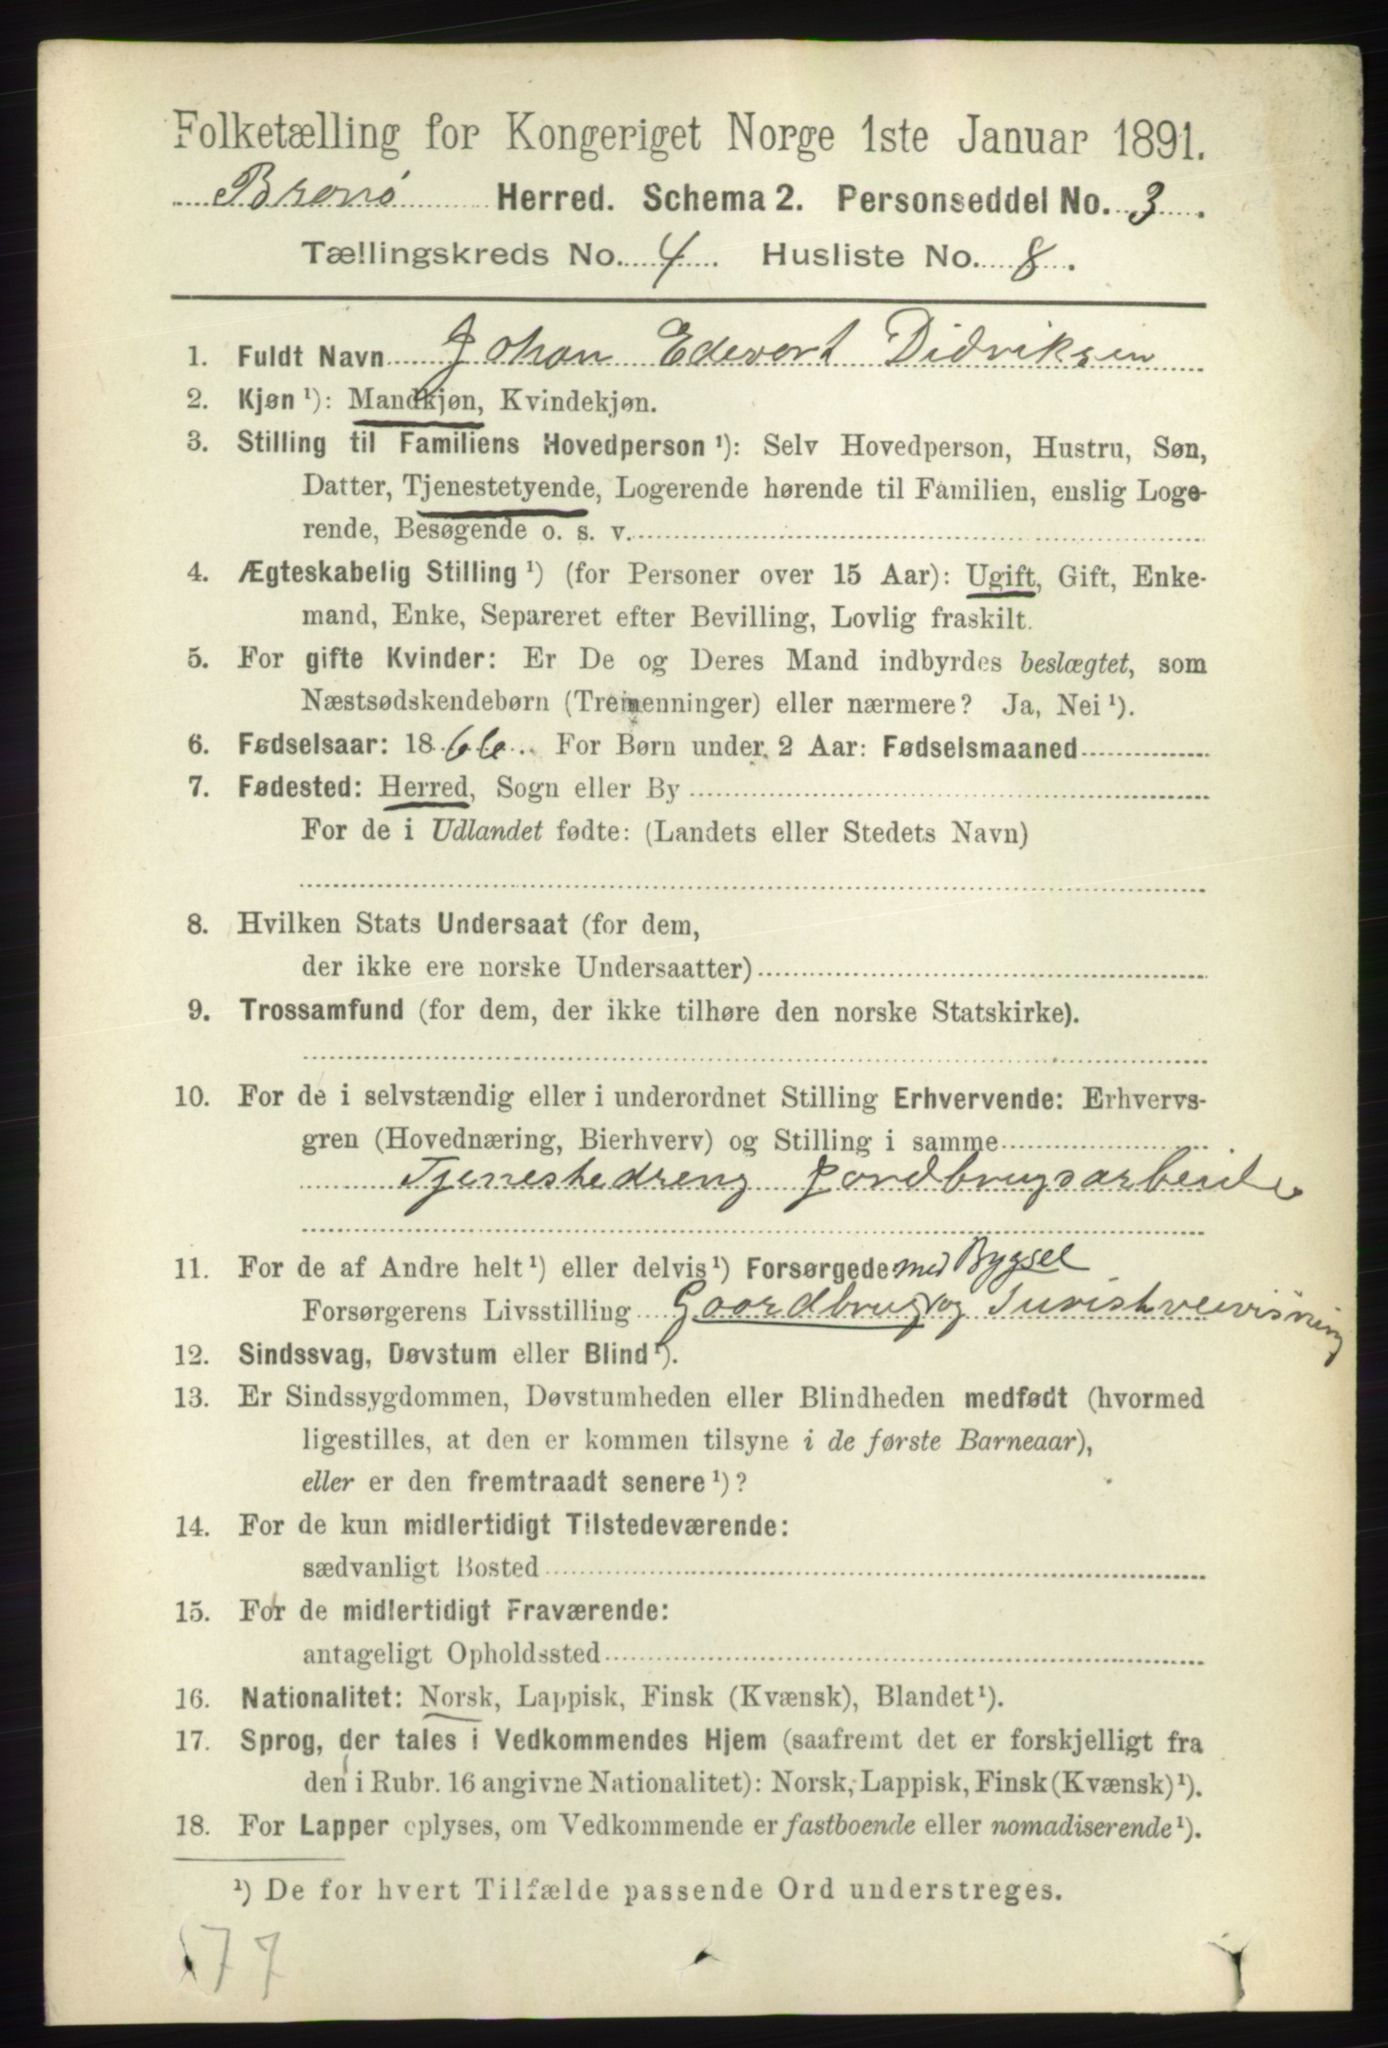 Folketælling for Kongeriget Norge 1ste Januar 1891.
Brønø Herred. Schema 2. Personseddel No. 3.
Tællingskreds No. 4. Husliste No. 8.
1. Fuldt Navn Johan Edevart Didriksen
2. Kjøn ¹): Mandkjøn, Kvindekjøn.
3. Stilling til Familiens Hovedperson ¹): Selv Hovedperson, Hustru, Søn,
Datter, Tjenestetyende, Logerende hørende til Familien, enslig Loge-
rende, Besøgende o. s. v.
4. Ægteskabelig Stilling ¹) (for Personer over 15 Aar): Ugift, Gift, Enke-
mand, Enke, Separeret efter Bevilling, Lovlig fraskilt.
5. For gifte Kvinder: Er De og Deres Mand indbyrdes beslægtet, som
Næstsødskendebørn (Tremenninger) eller nærmere? Ja, Nei ¹).
6. Fødselsaar: 1866. For Børn under 2 Aar: Fødselsmaaned
7. Fødested: Herred, Sogn eller By
For de i Udlandet fødte: (Landets eller Stedets Navn)
8. Hvilken Stats Undersaat (for dem,
der ikke ere norske Undersaatter)
9. Trossamfund (for dem, der ikke tilhøre den norske Statskirke).
10. For de i selvstændig eller i underordnet Stilling Erhvervende: Erhvervs-
gren (Hovednæring, Bierhverv) og Stilling i samme
Tjenestedreng Jordbrugsarbeide
11. For de af Andre helt ¹) eller delvis ¹) Forsørgede med Bygsel
Forsørgerens Livsstilling Gaardbrug og Turistveivisning
12. Sindssvag, Døvstum eller Blind ¹).
13. Er Sindssygdommen, Døvstumheden eller Blindheden medfødt (hvormed
ligestilles, at den er kommen tilsyne i de første Barneaar),
eller er den fremtraadt senere ¹)?
14. For de kun midlertidigt Tilstedeværende:
sædvanligt Bosted
15. For de midlertidigt Fraværende:
antageligt Opholdssted
16. Nationalitet: Norsk, Lappisk, Finsk (Kvænsk), Blandet ¹).
17. Sprog, der tales i Vedkommendes Hjem (saafremt det er forskjelligt fra
den i Rubr. 16 angivne Nationalitet): Norsk, Lappisk, Finsk (Kvænsk) ¹).
18. For Lapper oplyses, om Vedkommende er fastboende eller nomadiserende ¹).
¹) De for hvert Tilfælde passende Ord understreges.
77